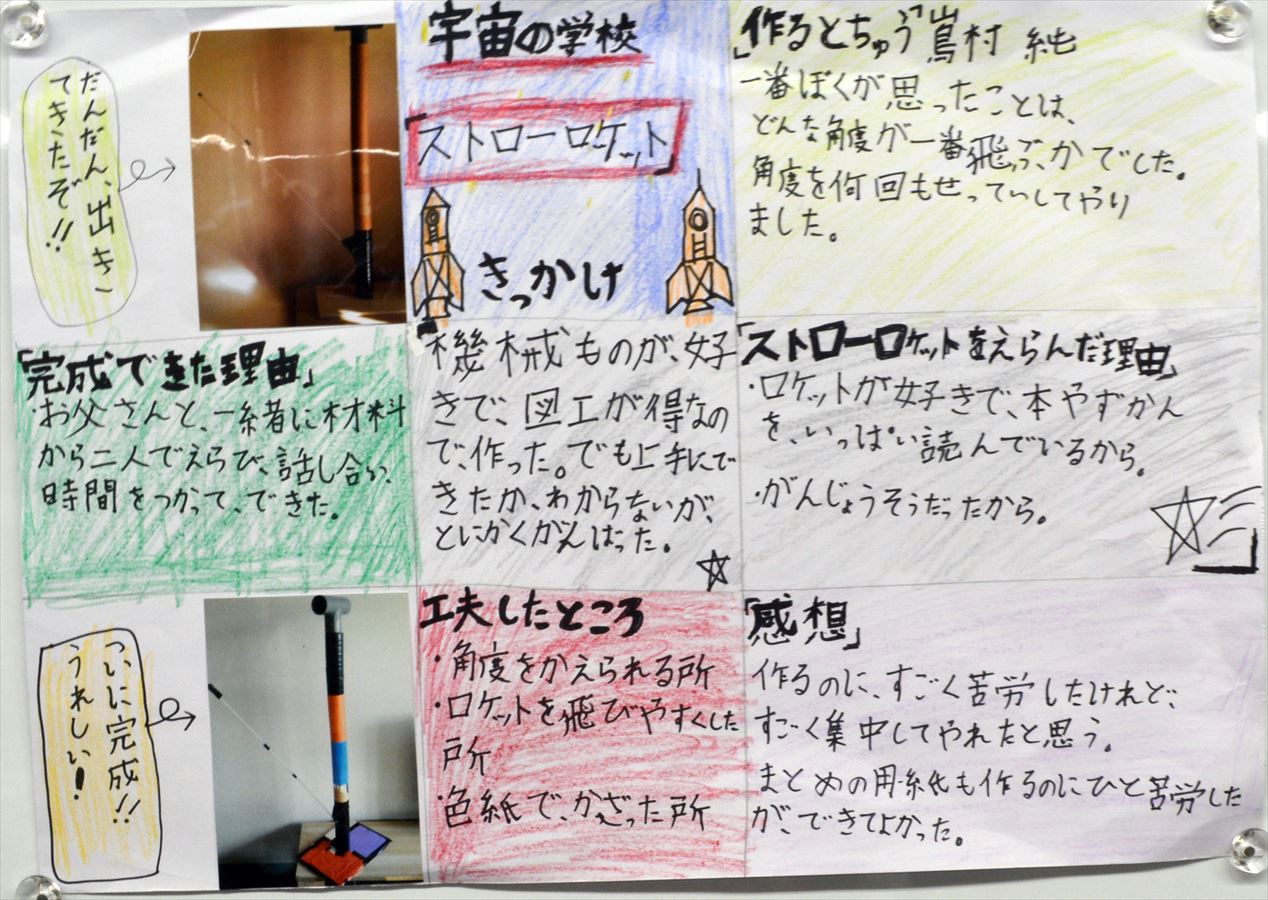 だんだん、出き
てきたぞ!!
宇宙の学校
「ストローロケット」
きっかけ
「作るとちゅう」嶌村 純
一番ぼくが思ったことは、
どんな角度が一番飛ぶ、かでした。
角度を何回もせっていしてやり
ました。
「完成できた理由」
・お父さんと、一緒に材料
から二人でえらび、話し合い、
時間をつかって、できた。
「機械ものが、好
きで、図工が得なの
で、作った。でも上手にで
きたか、わからないが、
とにかくがんばった。
「ストローロケットをえらんだ理由」
・ロケットが好きで、本やずかん
を、いっぱい読んでいるから。
・がんじょうそうだったから。
ついに完成!!
うれしい!
工夫したところ
・角度をかえられる所
・ロケットを飛びやすくした
所
・色紙で、かざった所
「感想」
作るのに、すごく苦労したけれど、
すごく集中してやれたと思う。
まとめの用紙も作るのにひと苦労した
が、できてよかった。